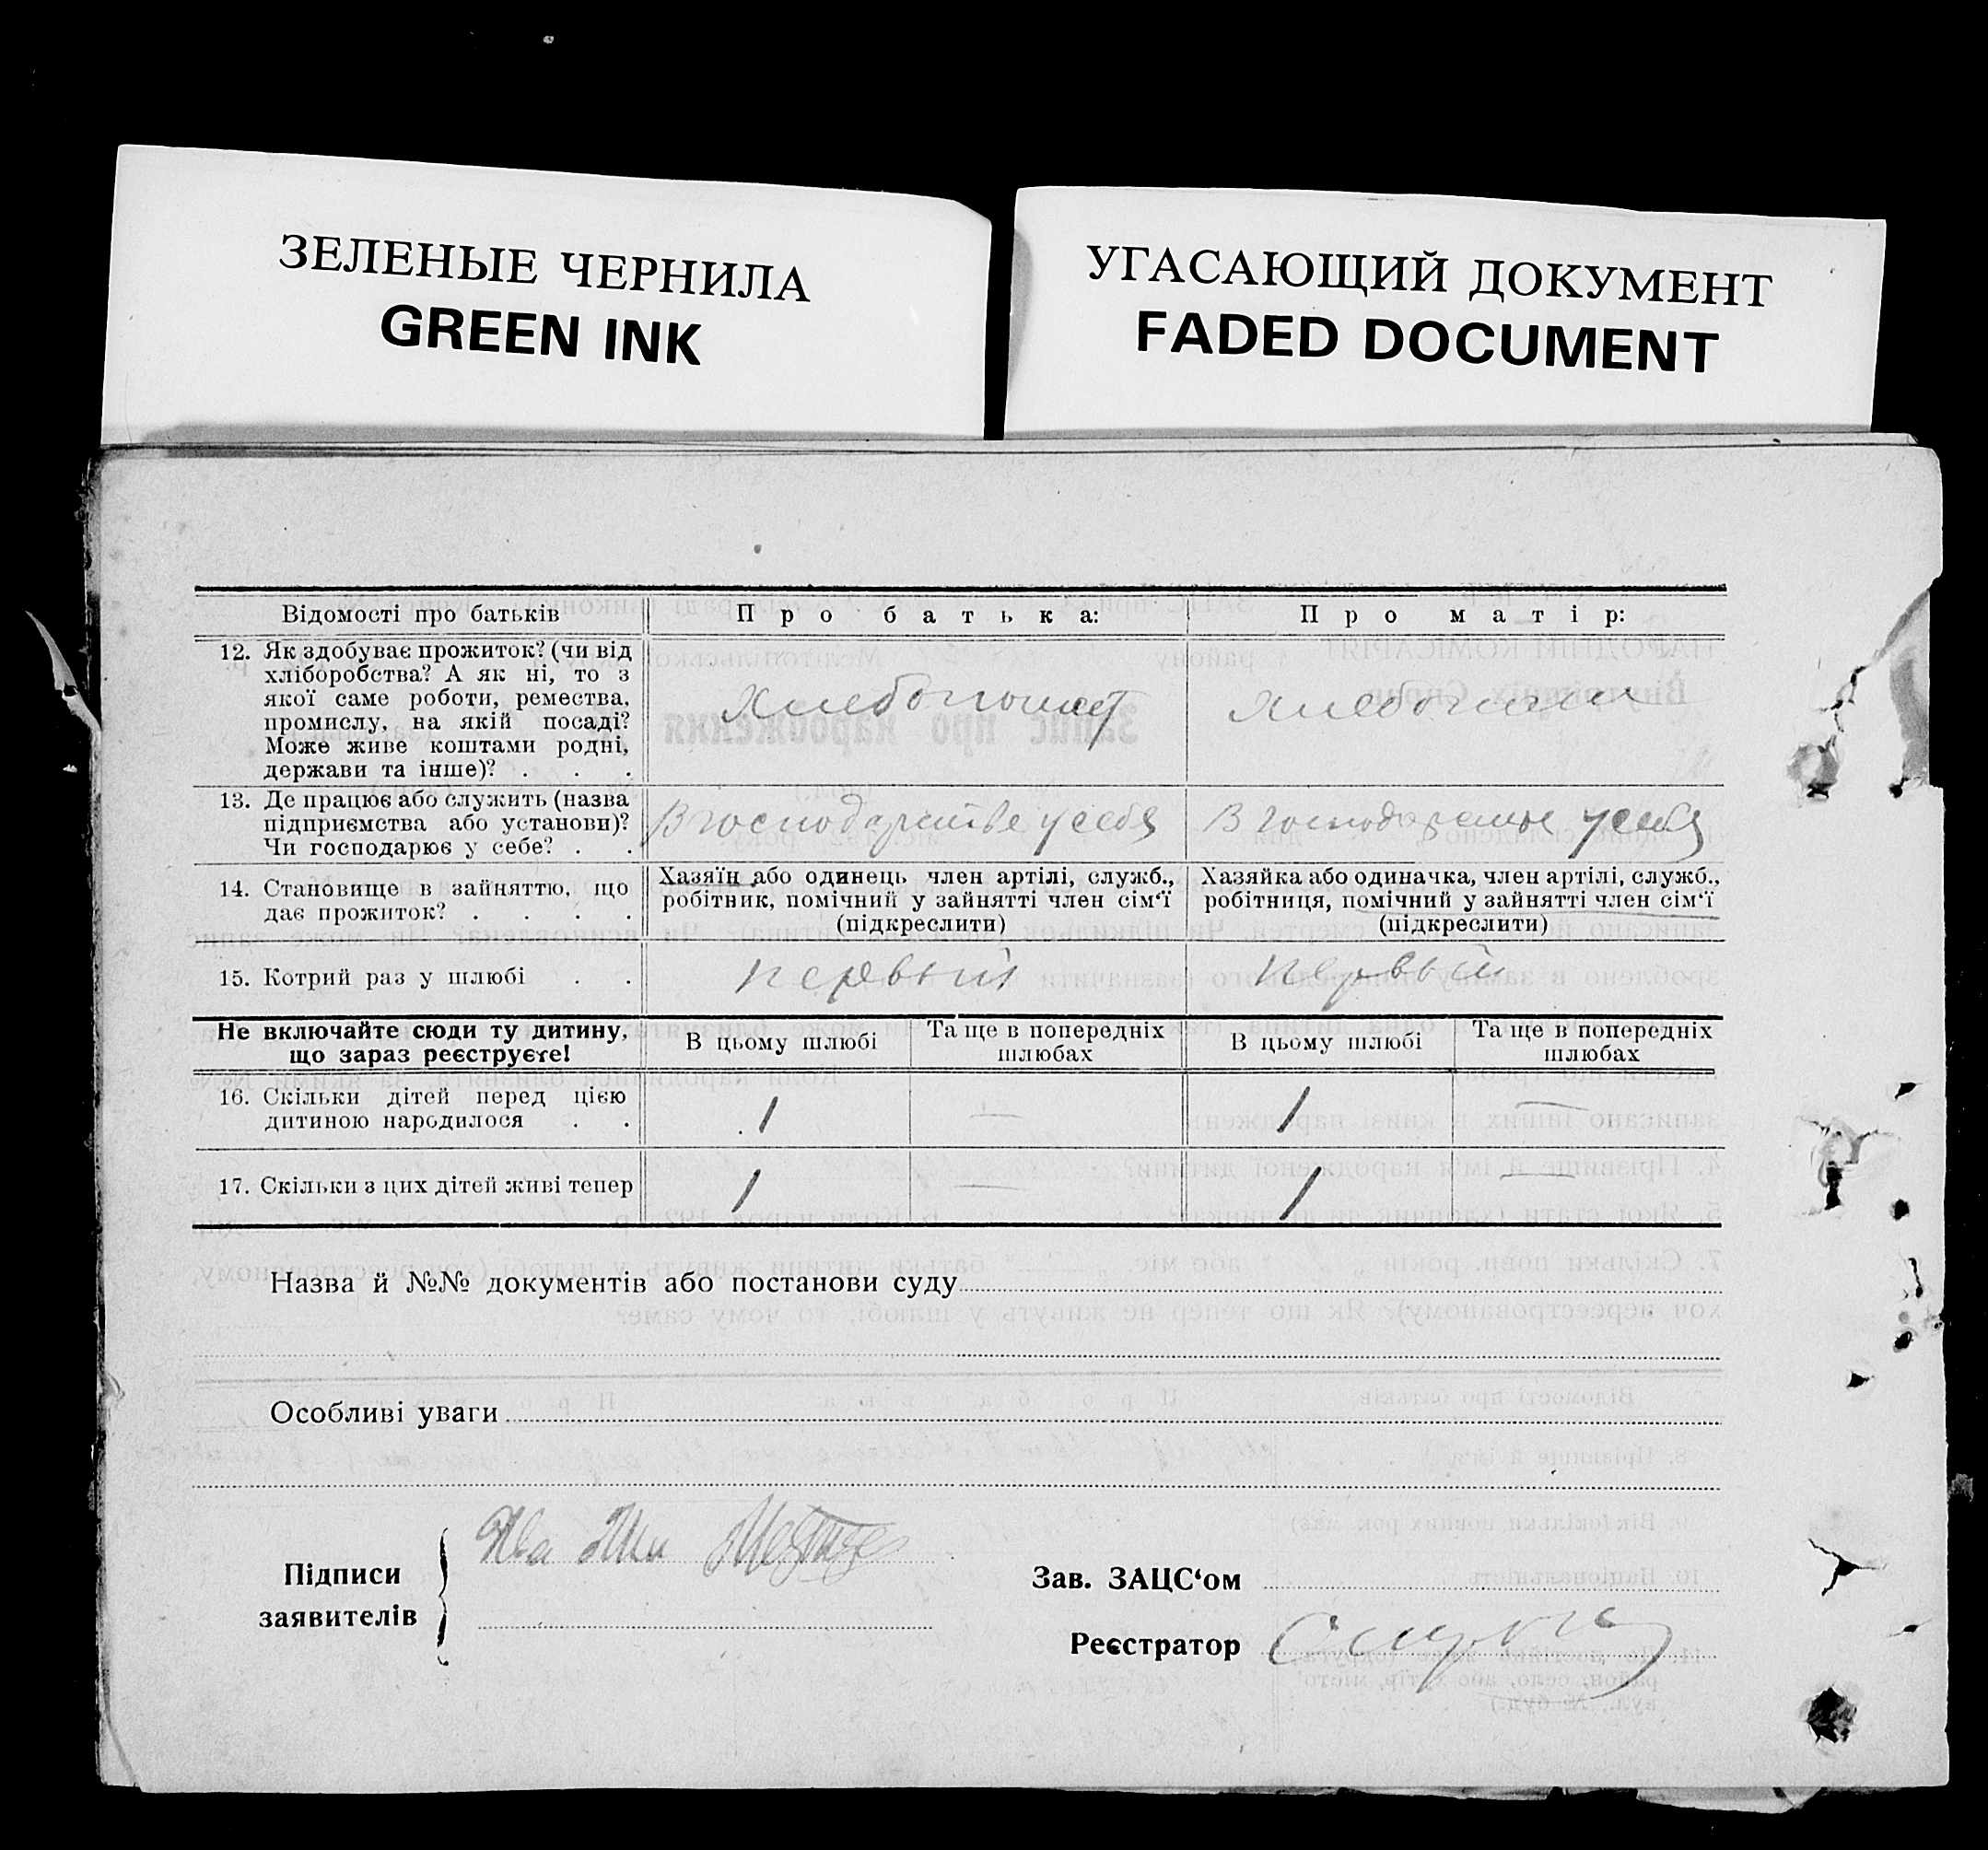 ЗЕЛЕНЫЕ ЧЕРНИЛА
GREEN INK
УГАСАЮЩИЙ ДОКУМЕНТ
FADED DOCUMENT
Відомості про батьків
Про батька:
Про матір:
12. Як здобуває прожиток? (чи від
хліборобства? А як ні, то з
якої саме роботи, ремества,
промислу, на якій посаді?
Може живе коштами родні,
держави та інше)? . . .
13. Де працює або служить (назва
підприємства або установи)?
Чи господарює у себе? . .
В господарстве у себя
В у себя
14. Становище в зайняттю, що
дає прожиток? . . . .
Хазяїн або одинець член артілі, служб.,
робітник, помічний у зайнятті член сім‘ї
(підкреслити)
Хазяйка або одиначка, член артілі, служб.,
робітниця, помічний у зайнятті член сім‘ї
(підкреслити)
15. Котрий раз у шлюбі . .
первый
первый
Не включайте сюди ту дитину,
що зараз реєструєте!
В цьому шлюбі
Та ще в попередніх
шлюбах
В цьому шлюбі
Та ще в попередніх
шлюбах
16. Скільки дітей перед цією
дитиною народилося . .
1
—
1
—
17. Скільки з цих дітей живі тепер
1
—
1
—
Назва й №№ документів або постанови суду
Особливі уваги
Підписи
заявителів
Зав. ЗАЦС‘ом
Реєстратор